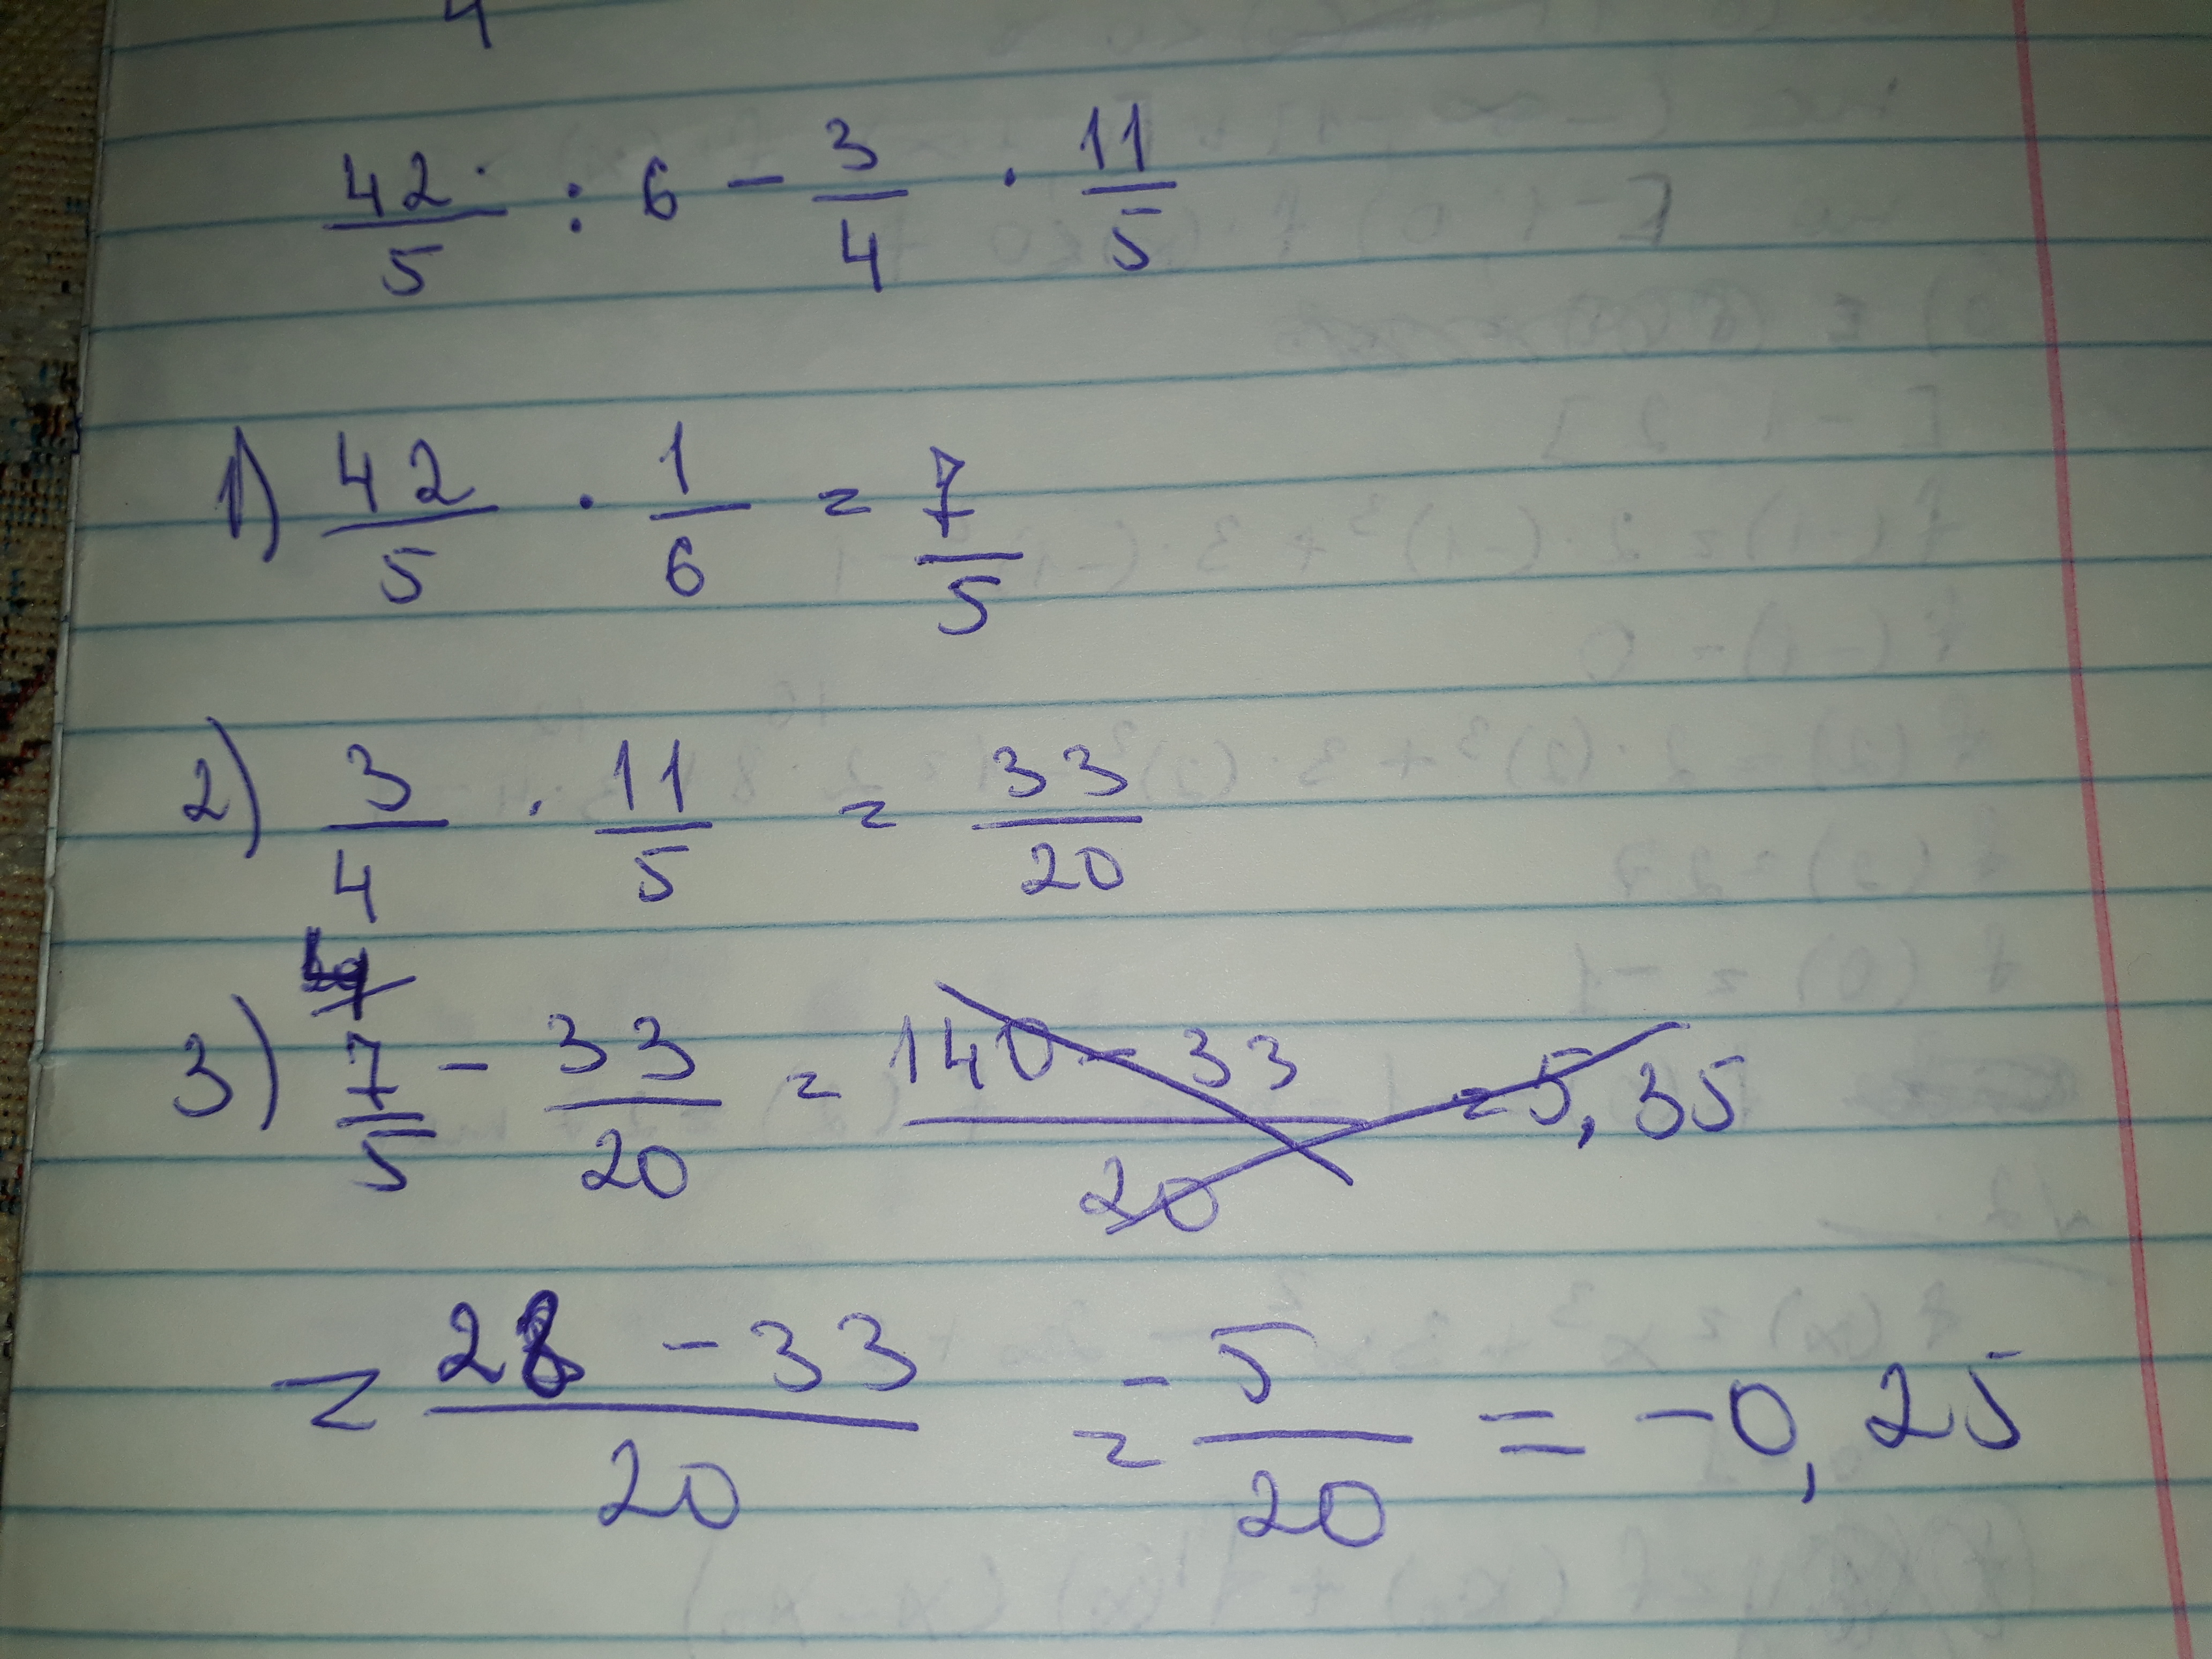 4
42/5 : 6 - 3/4 · 11/5
1) 42/5 · 1/6 = 7/5
2) 3/4 · 11/5 = 33/20
3) 7/5 - 33/20 = 140 - 33/20 = 5,35
= 28 - 33/20 = -5/20 = -0,25